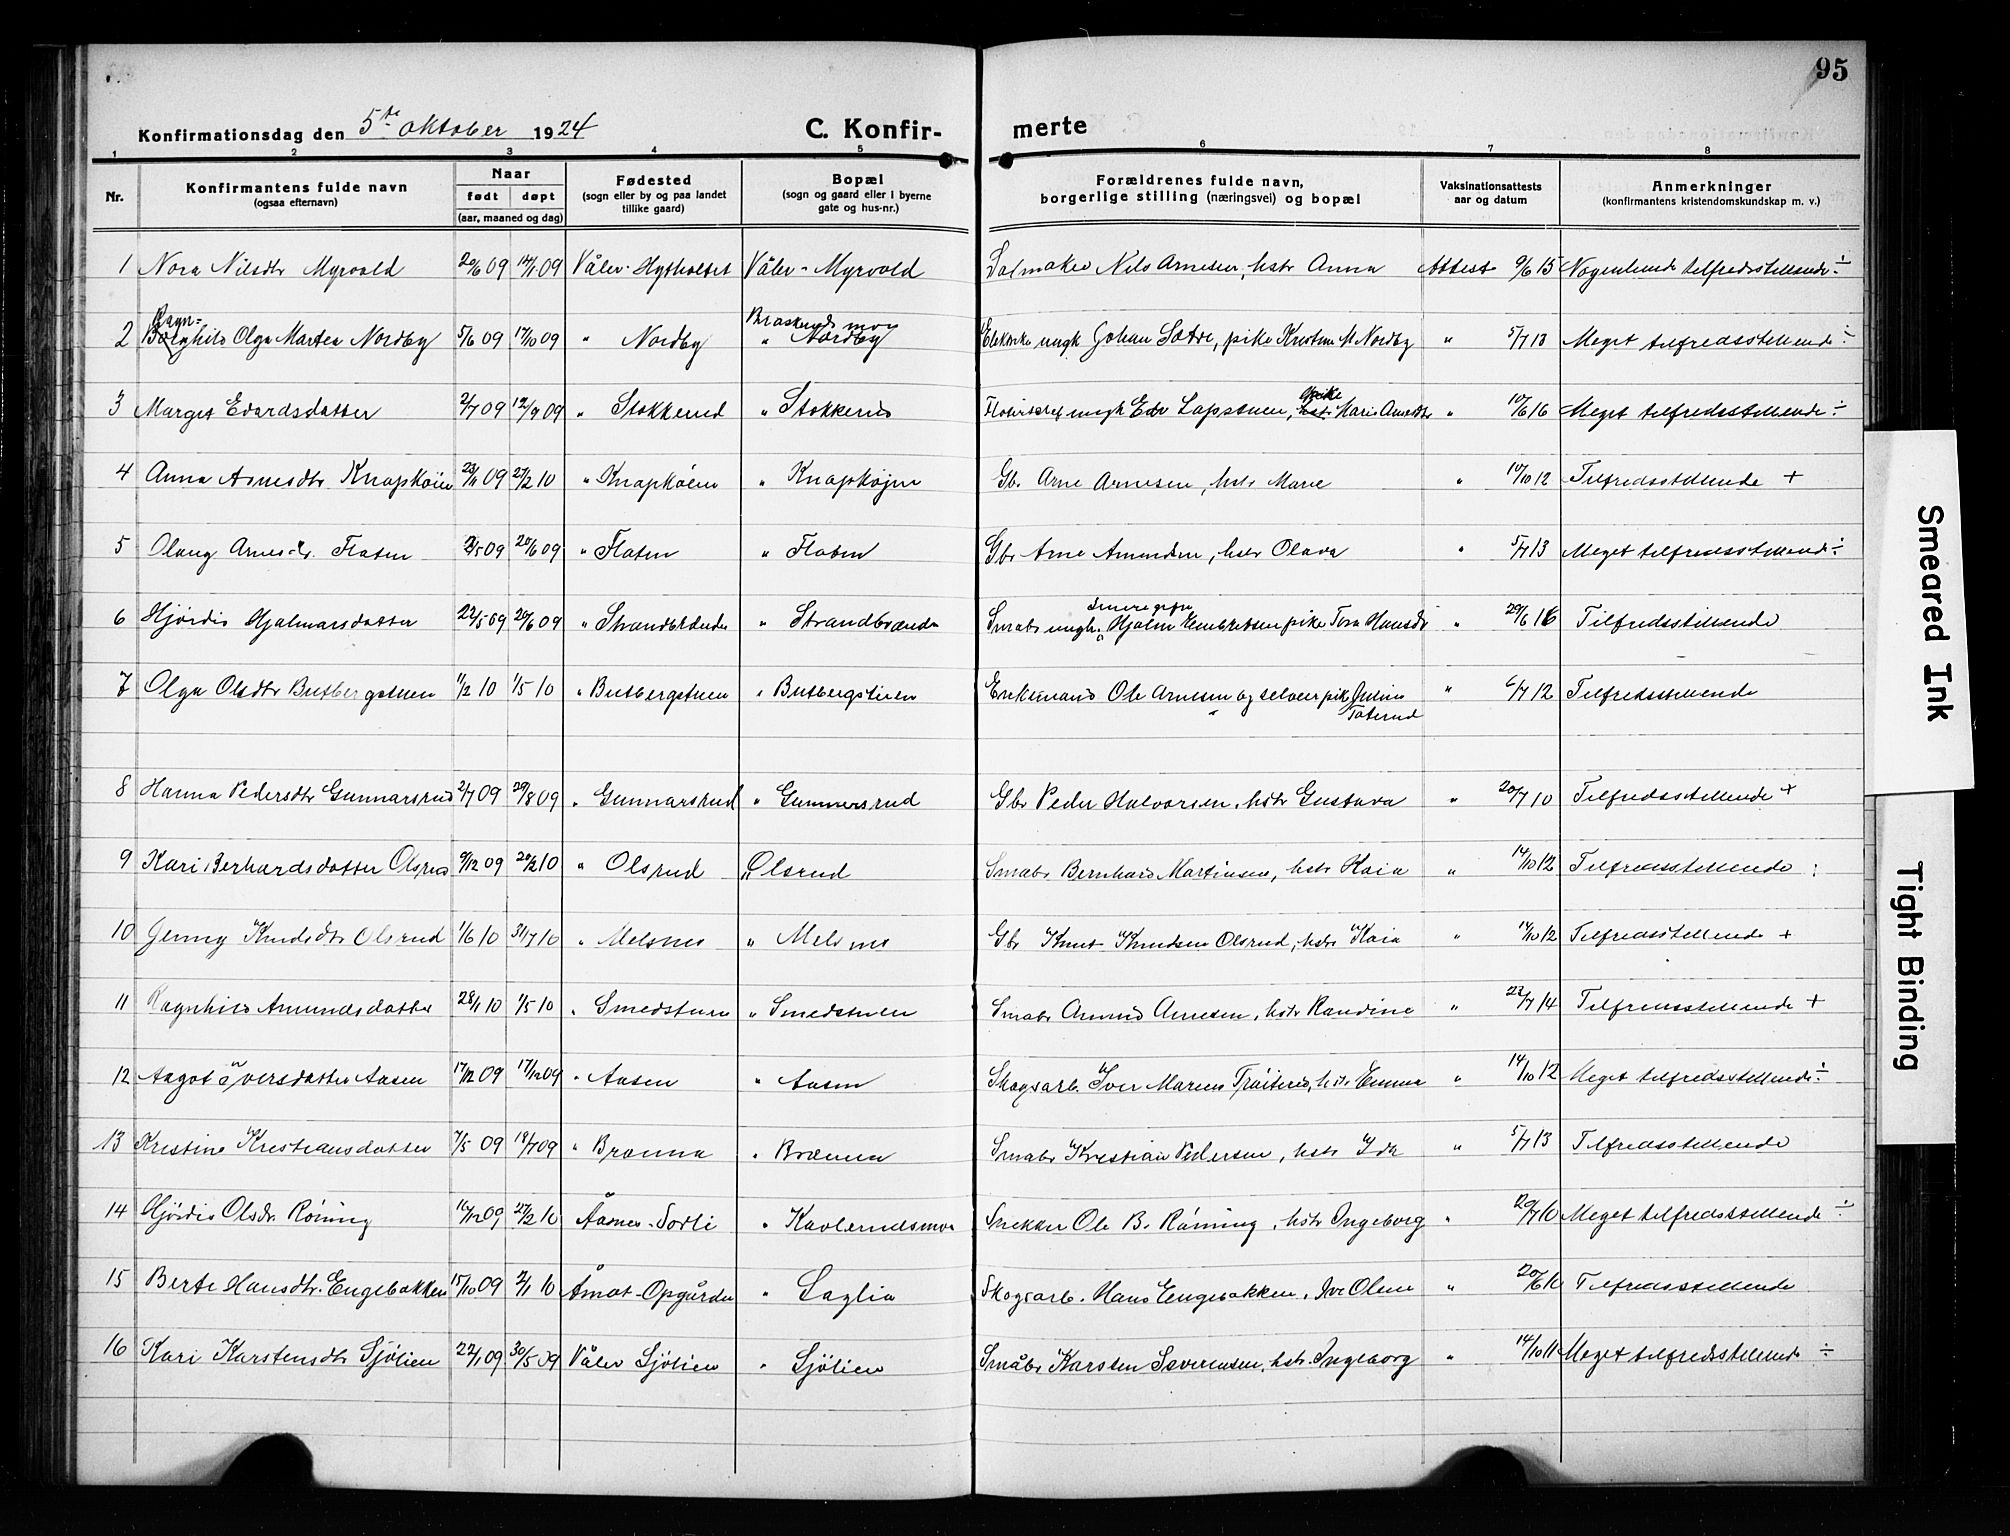 95
Konfirmationsdag den 5te oktober 1924 C. Konfir- merte
1 2 3 4 5 6 7 8
Nr. Konfirmantens fulde navn (ogsaa efternavn) Naar født døpt (aar, maaned og dag) Fødested (sogn eller by og paa landet tillike gaard) Bopæl (sogn og gaard eller i byerne gate og hus-nr.) Forældrenes fulde navn, borgerlige stilling (næringsvei) og bopæl Vaksinationsattests aar og datum Anmerkninger (konfirmantens kristendomskundskap m. v.)
1 Nora Nilsdtr Myrvold 20/6 09 09 Våler Våler - Myrvold Salmaker Nils Arnesen, hstr Anna Attest 9/6 15 Nogenlunde tilfredsstillende ÷
Ragn= Braskerudsmoen
2 Borghild Olga Martea Nordby 5/6 09 17/10 09 " Nordby " Nordby ungk Johan Sætre, pike Kristine M Nordby " 5/7 13 Meget tilfredsstillende ÷
pike
3 Marget Evardsdatter 2/7 09 12/9 09 " Stokkerud " Stokkerud ungk Edv Lappstuen, hstr Marie Arnesdtr " 10/6 16 Meget tilfredsstillende ÷
4 Anna Arnesdtr Knapköien 23/11 09 27/2 10 " Knapköien " Knapköjen Gbr Arne Arnesen, hstr Marie " 10/10 12 Tilfredsstillende +
5 Olaug Arnesdtr. Flaten 09 20/6 09 " Flaten " Flaten Gbr Arne Amundsen, hstr Olava " 5/7 13 Meget tilfredsstillende ÷
senere gifte
6 Hjördis Hjalmarsdatter 22/5 09 20/6 09 " Strandbrænden " Strandbrænden Smabr ungk. Hjalm Embretsen pike Tora Hansdtr " 29/6 16 Tilfredsstillende
7 Olga Olsdtr Butbergstuen 11/2 10 1/5 10 " Butbergstuen " Butbergstuen Enkemand Ole Arnesen og selveierpike Juline " 6/7 12 Tilfredsstillende
Taterud
8 Hanna Pedersdtr Gunnarsrud 2/7 09 29/8 09 " Gunnarsrud " Gunnersrud Gbr Peder Halvorsen, hstr Gustava " 20/7 10 Tilfredsstillende +
9 Kari Berhardsdatter Olsrud 9/12 09 20/2 10 " Olsrud " Olsrud Smabr Bernhard Martinsen, hstr Kaia " 14/10 12 Tilfredsstillende :
10 Jenny Knudsdtr Olsrud 1/6 10 31/7 10 " Melsnes " Melsnes Gbr Knut Knudsen Olsrud, hstr Kaia " 14/10 12 Tilfredsstillende +
11 Ragnhild Amundsdatter 28/1 10 1/5 10 " Smedstuen " Smedstuen Smabr Amund Arnesen, hstr Randine " 23/7 14 Tilfredsstillende +
12 Aagot Iversdatter Aasen 17/12 09 09 " Aasen " Aasen Skogsarb. Iver Marius hstr Emma " 14/10 12 Meget tilfredsstillende ÷
13 Kristine Kristiansdatter 7/5 09 18/7 09 " Brænna " Brænna Smabr Kristian Pedersen, hstr Ida " 5/7 13 Tilfredsstillende
14 Hjördis Olsdr. Röning 16/12 09 27/2 10 Åsnes - Sorli " Kavlerudsmoen Snekker Ole B. Röning, hstr Ingeborg " 20/7 10 Meget tilfredsstillende ÷
15 Berte Hansdtr. Engebakken 15/10 09 2/1 10 Åmot - Opgården " Saglia Skogsarb. Hans Engebakken, Olene " 20/6 Tilfredsstillende
16 Kari Karstensdtr Sjölien 22/1 09 30/5 09 Våler Sjölien " Sjölien Småbr Karsten Severinsen, hstr. Ingeborg " 14/10 11 Meget tilfredsstillende ÷
Smeared Ink
Tight Binding